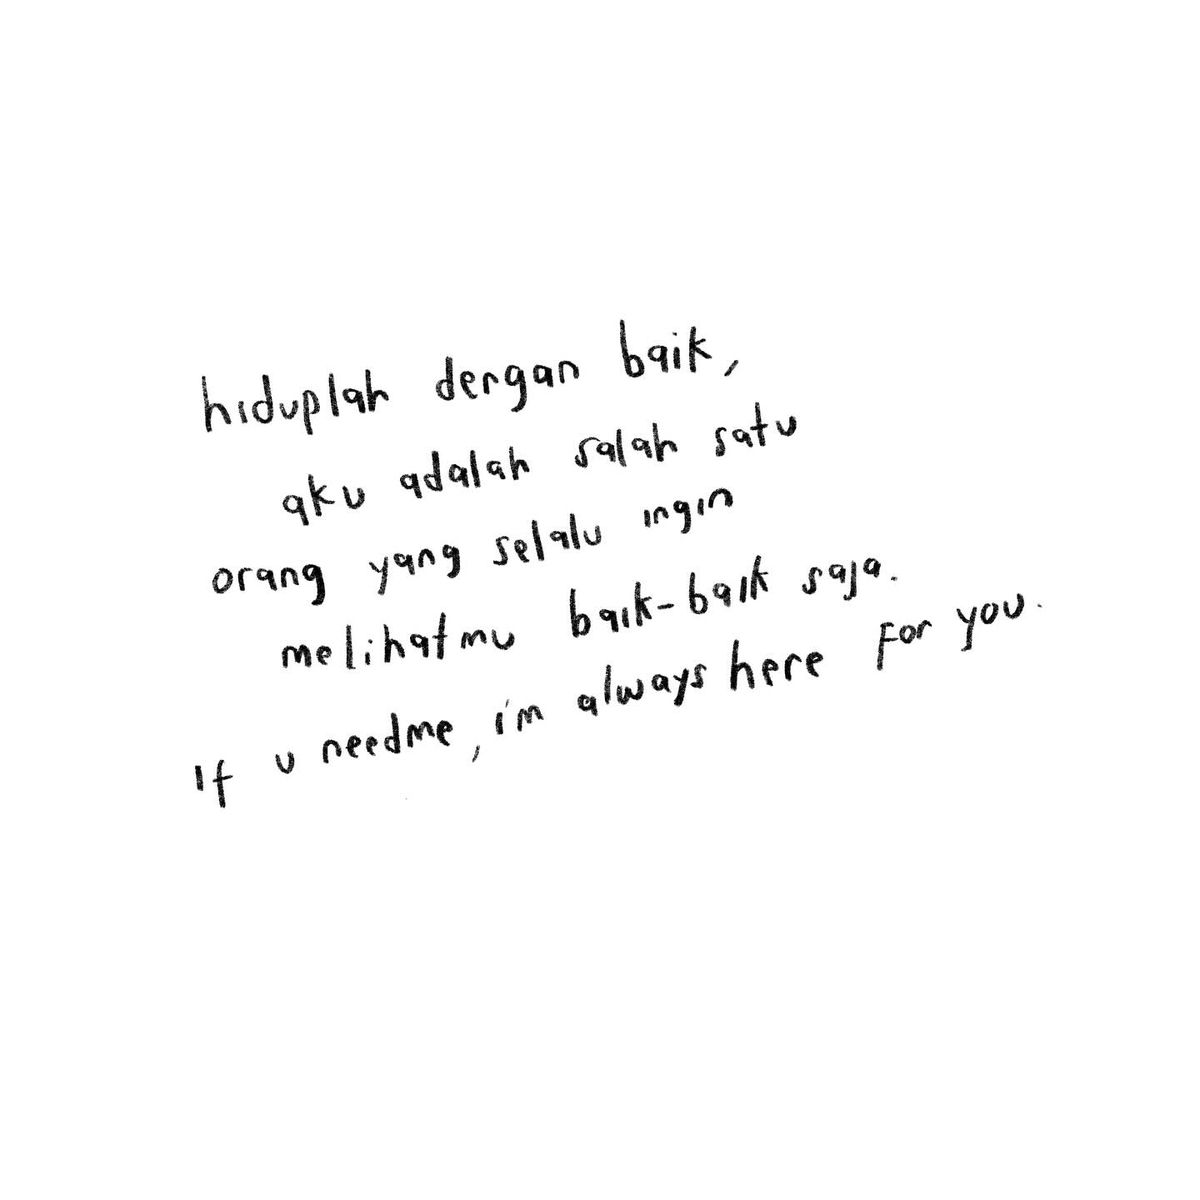 hiduplah dengan baik,
aku adalah salah satu
orang yang selalu ingin
melihatmu baik-baik saja.
If u needme, i'm always here For you.